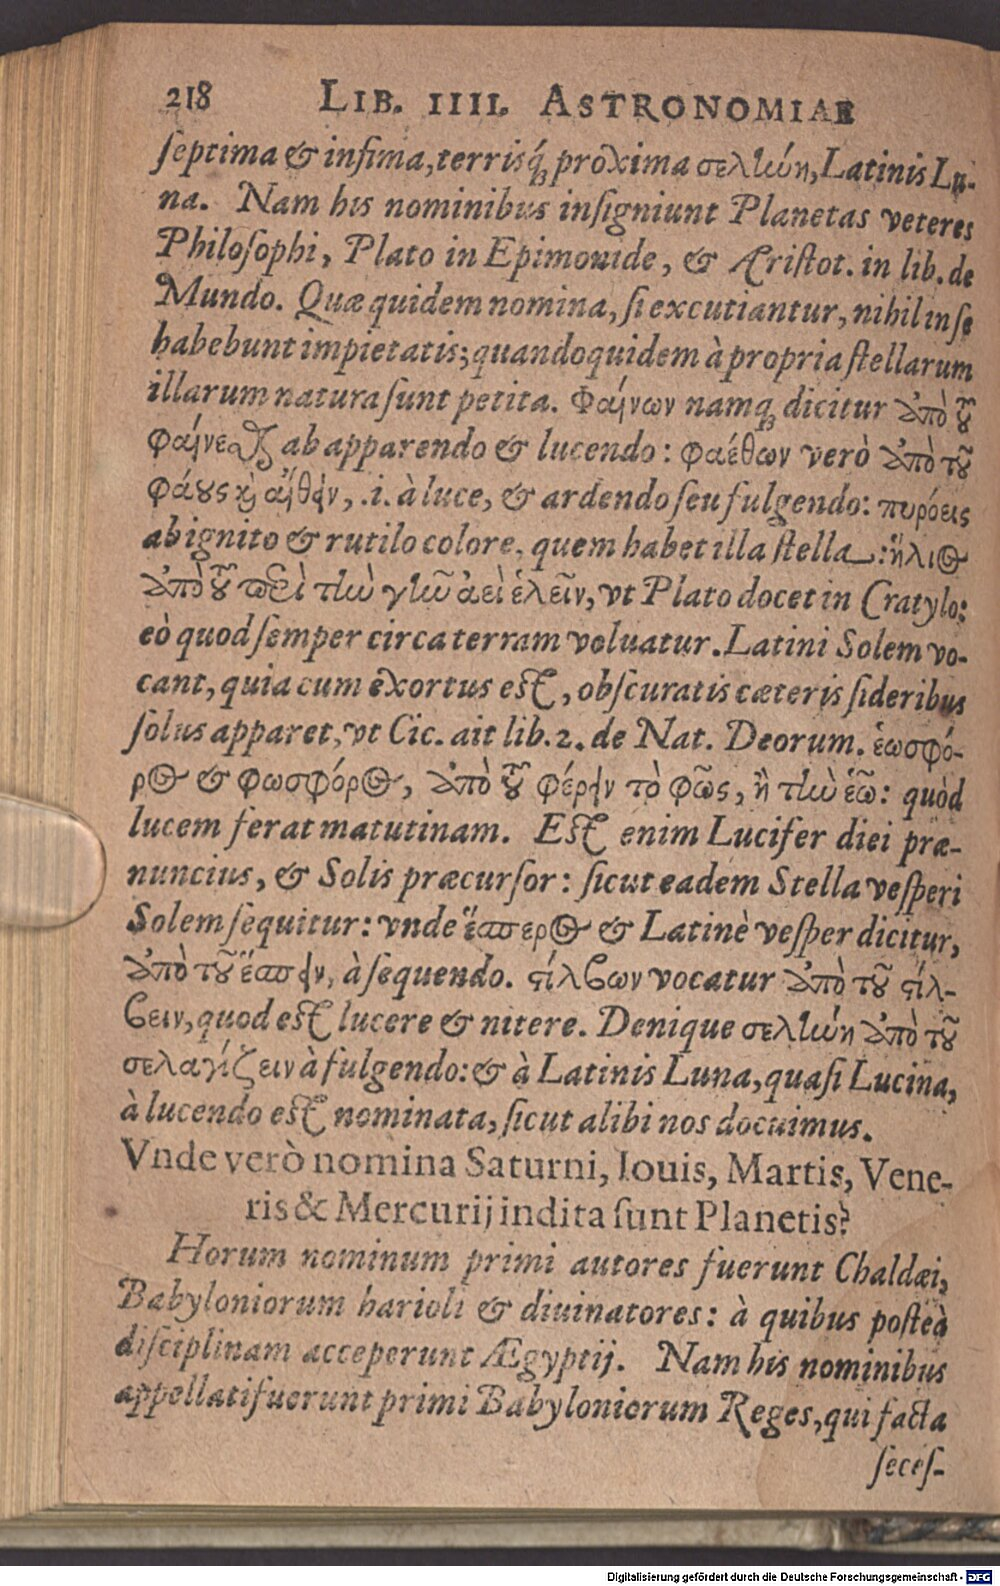 218 LIB. IIII. ASTRONOMIAE
septima & infima, terrisq́; proxima σελήνη, Latinis Lu-
na. Nam his nominibus insigniunt Planetas veteres
Philosophi, Plato in Epimonide, & Aristot. in lib. de
Mundo. Quæ quidem nomina, si excutiantur, nihil in se
habebunt impietatis; quandoquidem à propria stellarum
illarum natura sunt petita. Φαίνων namq; dicitur ἀπὸ τοῦ
φαίνεσθαι ab apparendo & lucendo: φαέθων verò ἀπὸ τοῦ
φάους καὶ αἴθειν, .i. à luce, & ardendo seu fulgendo: πυρόεις
ab ignito & rutilo colore, quem habet illa stella: ἥλιος
ἀπὸ τοῦ περὶ τὴν γῆν ἀεὶ ἑλεῖν, vt Plato docet in Cratylo:
eò quod semper circa terram voluatur. Latini Solem vo-
cant, quia cum exortus est, obscuratis cæteris sideribus
solus apparet, vt Cic. ait lib. 2. de Nat. Deorum. ἑωσφό-
ρος & φωσφόρος, ἀπὸ τοῦ φέρειν τὸ φῶς, ἢ τὴν ἑῶ: quòd
lucem ferat matutinam. Est enim Lucifer diei præ-
nuncius, & Solis præcursor: sicut eadem Stella vesperi
Solem sequitur: vnde ἕσπερος & Latinè vesper dicitur,
ἀπὸ τοῦ ἕσπειν, à sequendo. στίλβων vocatur ἀπὸ τοῦ στίλ-
βειν, quod est lucere & nitere. Denique σελήνη ἀπὸ τοῦ
σελαγίζειν à fulgendo: & à Latinis Luna, quasi Lucina,
à lucendo est nominata, sicut alibi nos docuimus.
Vnde verò nomina Saturni, Iouis, Martis, Vene-
ris & Mercurij indita sunt Planetis?
Horum nominum primi autores fuerunt Chaldæi,
Babyloniorum harioli & diuinatores: à quibus posteà
disciplinam acceperunt Ægyptij. Nam his nominibus
appellati fuerunt primi Babyloniorum Reges, qui facta
seces-
Digitalisierung gefördert durch die Deutsche Forschungsgemeinschaft - DFG